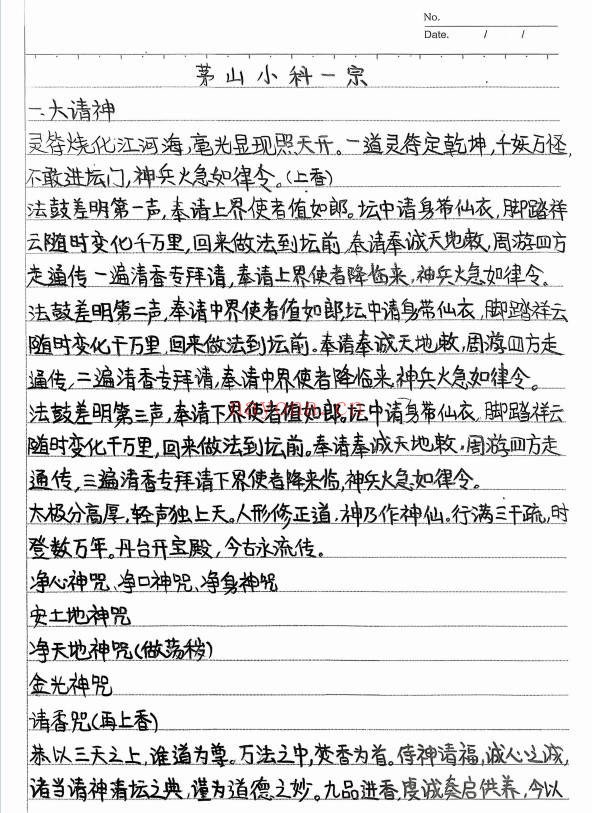 No.
Date. / /
茅山小科一宗
一、大请神
灵符烧化江河海,毫光显现照天开。一道灵符定乾坤,千妖万怪,
不敢进坛门,神兵火急如律令。(上香)
法鼓差明第一声,奉请上界使者值如郎。坛中请身带仙衣,脚踏祥
云随时变化千万里,回来做法到坛前 奉请奉诚天地敕,周游四方
走通传 一遍清香专拜请,奉请上界使者降临来,神兵火急如律令。
法鼓差明第二声,奉请中界使者值如郎.坛中请身带仙衣,脚踏祥云
随时变化千万里,回来做法到坛前。奉请奉诚天地敕,周游四方走
通传,二遍清香专拜清,奉请中界使者降临来,神兵火急如律令。
法鼓差明第三声,奉请下界使者值如郎。坛中请身带仙衣,脚踏祥云
随时变化千万里,回来做法到坛前。奉请奉诚天地敕,周游四方走
通传,三遍清香专拜请下界使者降来临,神兵火急如律令。
太极分高厚,轻声独上天。人形修正道,神乃作神仙。行满三千疏,时
登数万年。丹台开宝殿,今古永流传。
净心神咒、净口神咒、净身神咒
安土地神咒
净天地神咒(做荡秽)
金光神咒
请香咒(再上香)
恭以三天之上,谁道为尊。万法之中,焚香为首。侍神请福,诚心之诚,
诸当请神清坛之典,谨为道德之妙。九品进香,虔诚奏启供养,今以